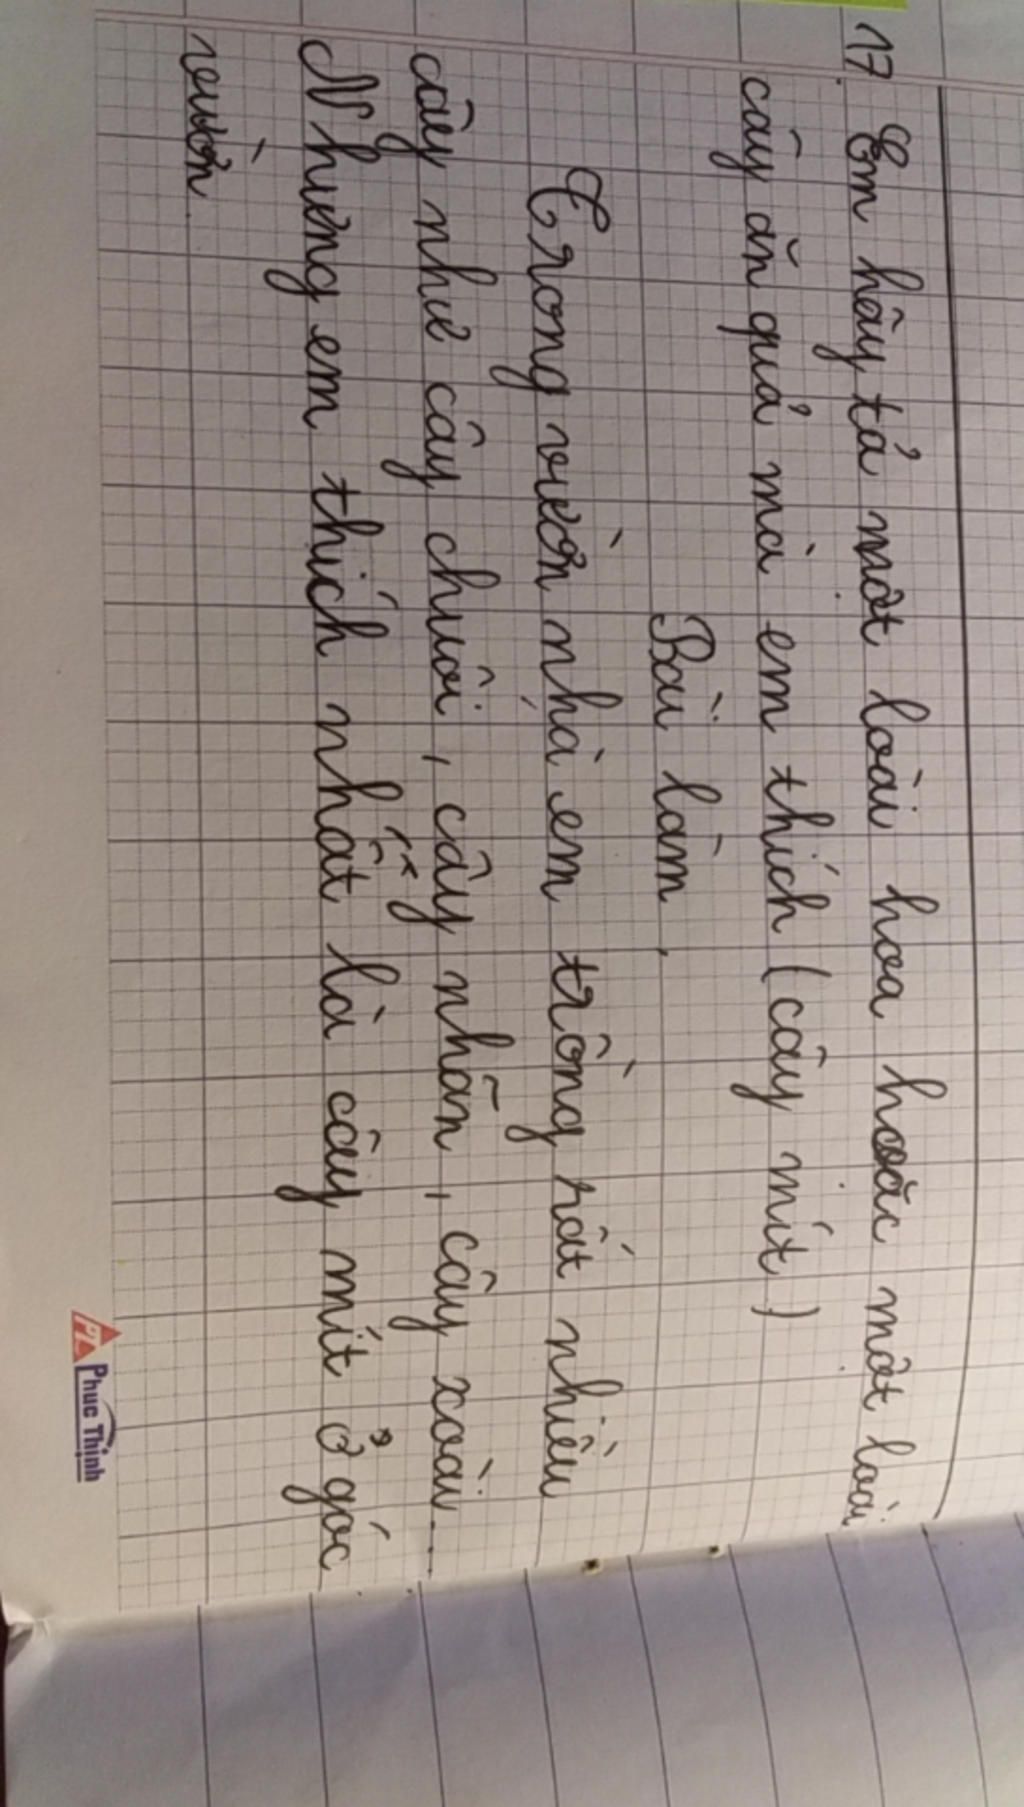 17. Em hãy tả một loài hoa hoặc một loài
cây ăn quả mà em thích (cây mít)
Bài làm
Trong vườn nhà em trồng rất nhiều
cây như cây chuối, cây nhãn, cây xoài...
Nhưng em thích nhất là cây mít ở góc
vườn.
Phuc Thịnh